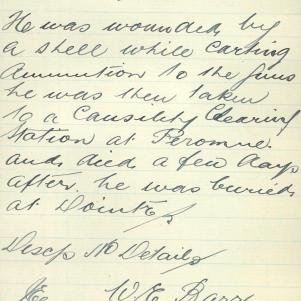 He was wounded by
a shell while carting
Ammution to the guns
he was then taken
to a Causility Clearing
Station at Peronne.
and died a few days
after. he was buried
at Dointe
Descp No Details
W. E. Barr